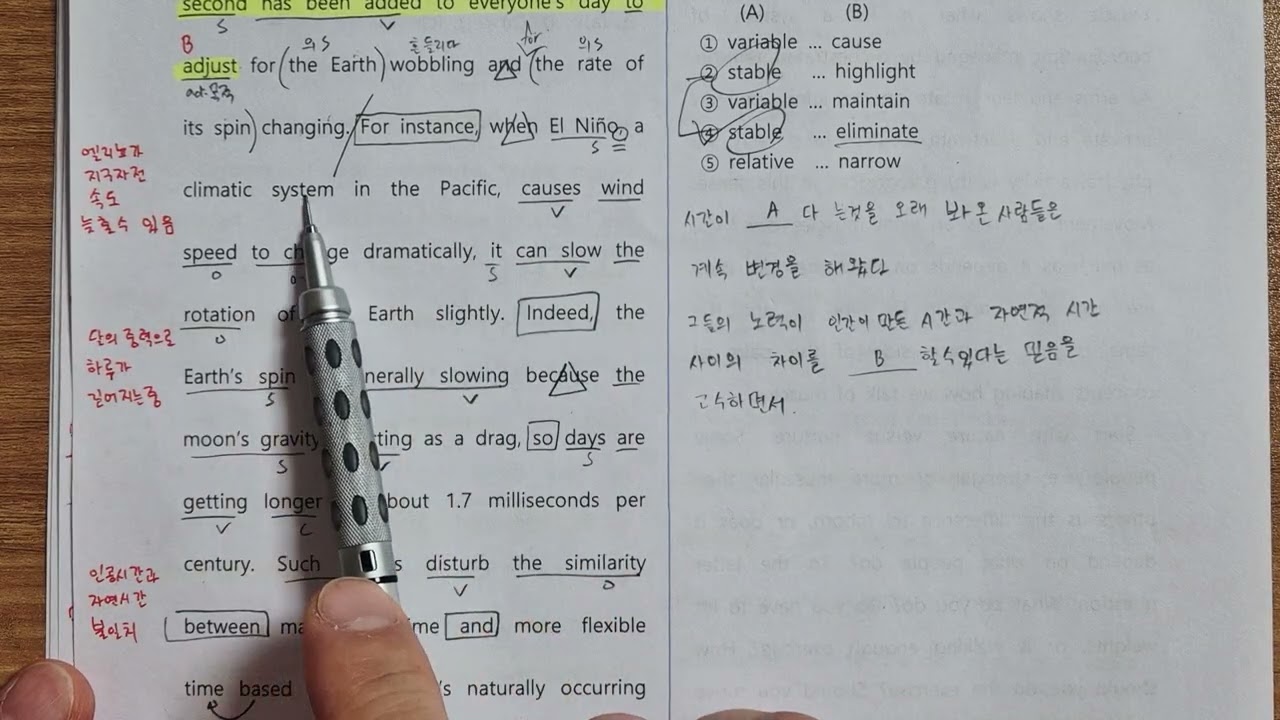 second has been added to everyone's day to
S V
B 의S 흔들리다 for 의S
adjust for (the Earth) wobbling and (the rate of
its spin) changing. For instance, when El Niño, a
S
엘리뇨가
지구자전
속도
늦출수 있음
climatic system in the Pacific, causes wind
V
speed to ch ge dramatically, it can slow the
O S V
rotation of Earth slightly. Indeed, the
O
달의 중력으로
하루가
길어지는중
Earth's spin nerally slowing because the
S V
moon's gravity ting as a drag, so days are
S V S
getting longer bout 1.7 milliseconds per
V C
century. Such s disturb the similarity
V O
인공시간과
자연시간
불일치
between ma me and more flexible
time based 's naturally occurring
(A) (B)
① variable ... cause
② stable ... highlight
③ variable ... maintain
④ stable ... eliminate
⑤ relative ... narrow
시간이 A 다 는것을 오래 봐 온 사람들은
계속 변경을 해왔다
그들의 노력이 인간이 만든 A간과 자연적 시간
사이의 차이를 B 할수있다는 믿음을
고수하면서.